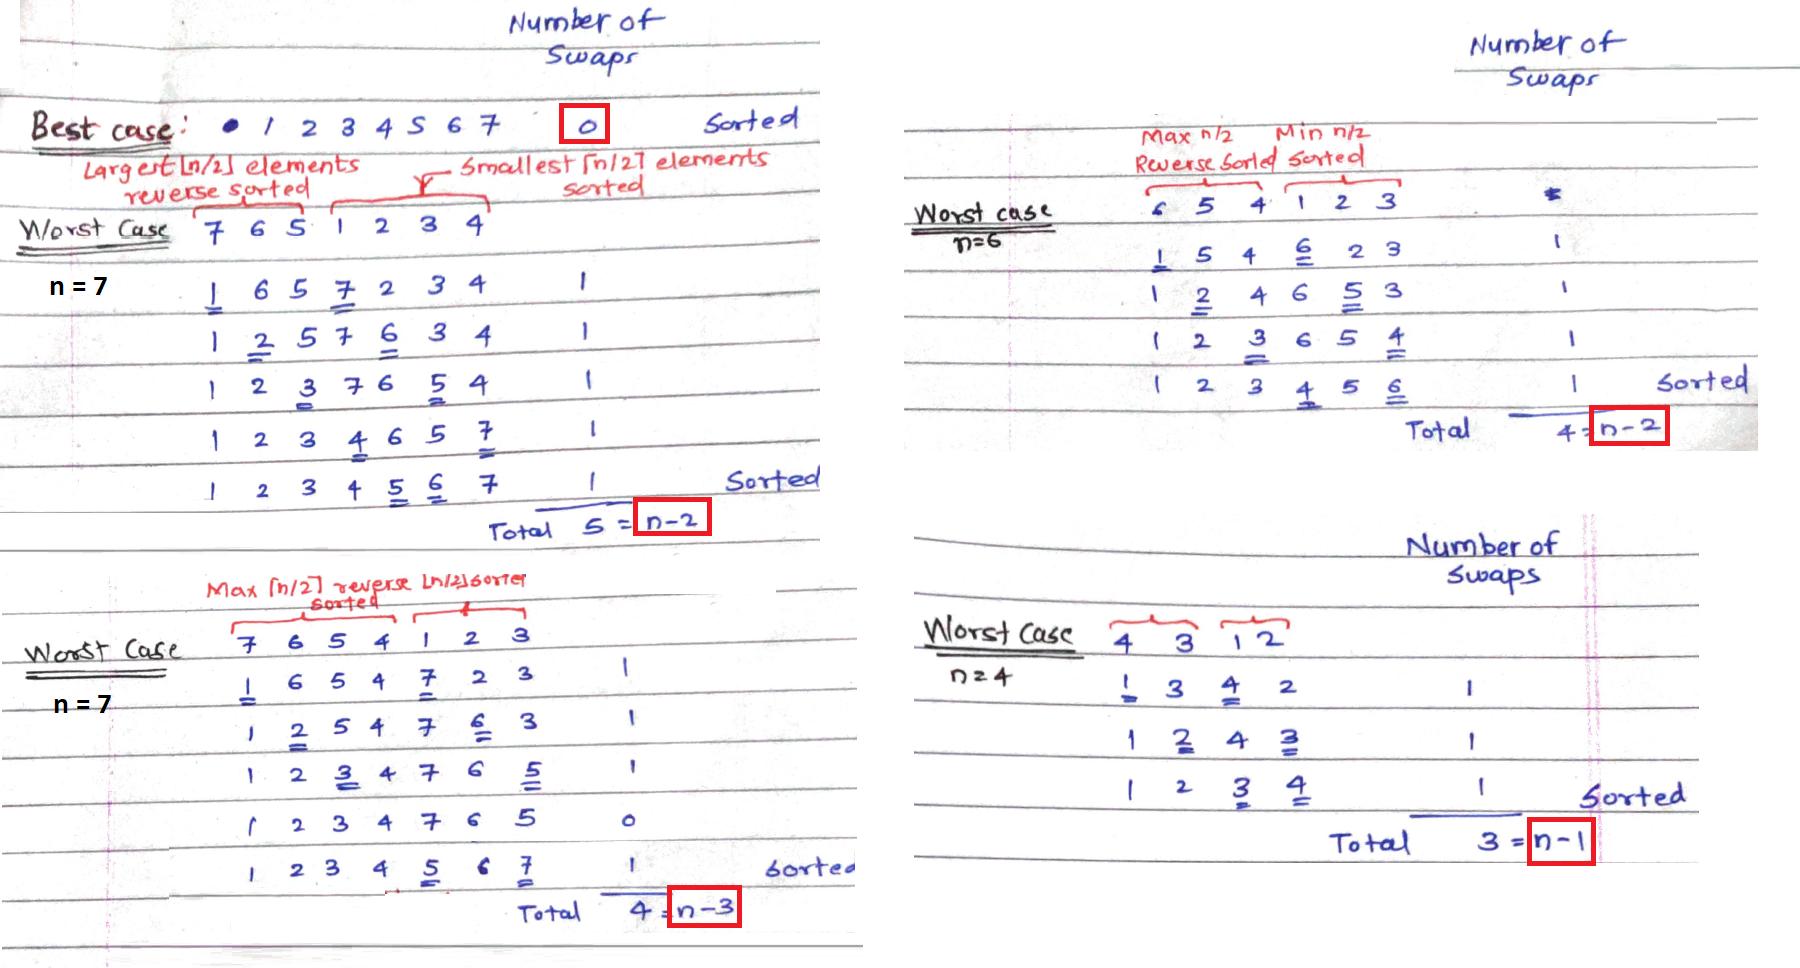 Number of
Swaps
Best case: 1 2 3 4 5 6 7 0 Sorted
Largest ⌊n/2⌋ elements
reverse sorted
Smallest ⌈n/2⌉ elements
sorted
Worst Case 7 6 5 1 2 3 4
n = 7
1 6 5 7 2 3 4 1
1 2 5 7 6 3 4 1
1 2 3 7 6 5 4 1
1 2 3 4 6 5 7 1
1 2 3 4 5 6 7 1 Sorted
Total 5 = n-2
Max ⌈n/2⌉ reverse
sorted
⌊n/2⌋ sorted
Worst Case 7 6 5 4 1 2 3
n = 7
1 6 5 4 7 2 3 1
1 2 5 4 7 6 3 1
1 2 3 4 7 6 5 1
1 2 3 4 7 6 5 0
1 2 3 4 5 6 7 1 Sorted
Total 4 = n-3
Number of
Swaps
Max n/2
Reverse Sorted
Min n/2
Sorted
Worst case 6 5 4 1 2 3
n=6
1 5 4 6 2 3 1
1 2 4 6 5 3 1
1 2 3 6 5 4 1
1 2 3 4 5 6 1 Sorted
Total 4 = n-2
Number of
Swaps
Worst Case 4 3 1 2
n=4
1 3 4 2 1
1 2 4 3 1
1 2 3 4 1 Sorted
Total 3 = n-1